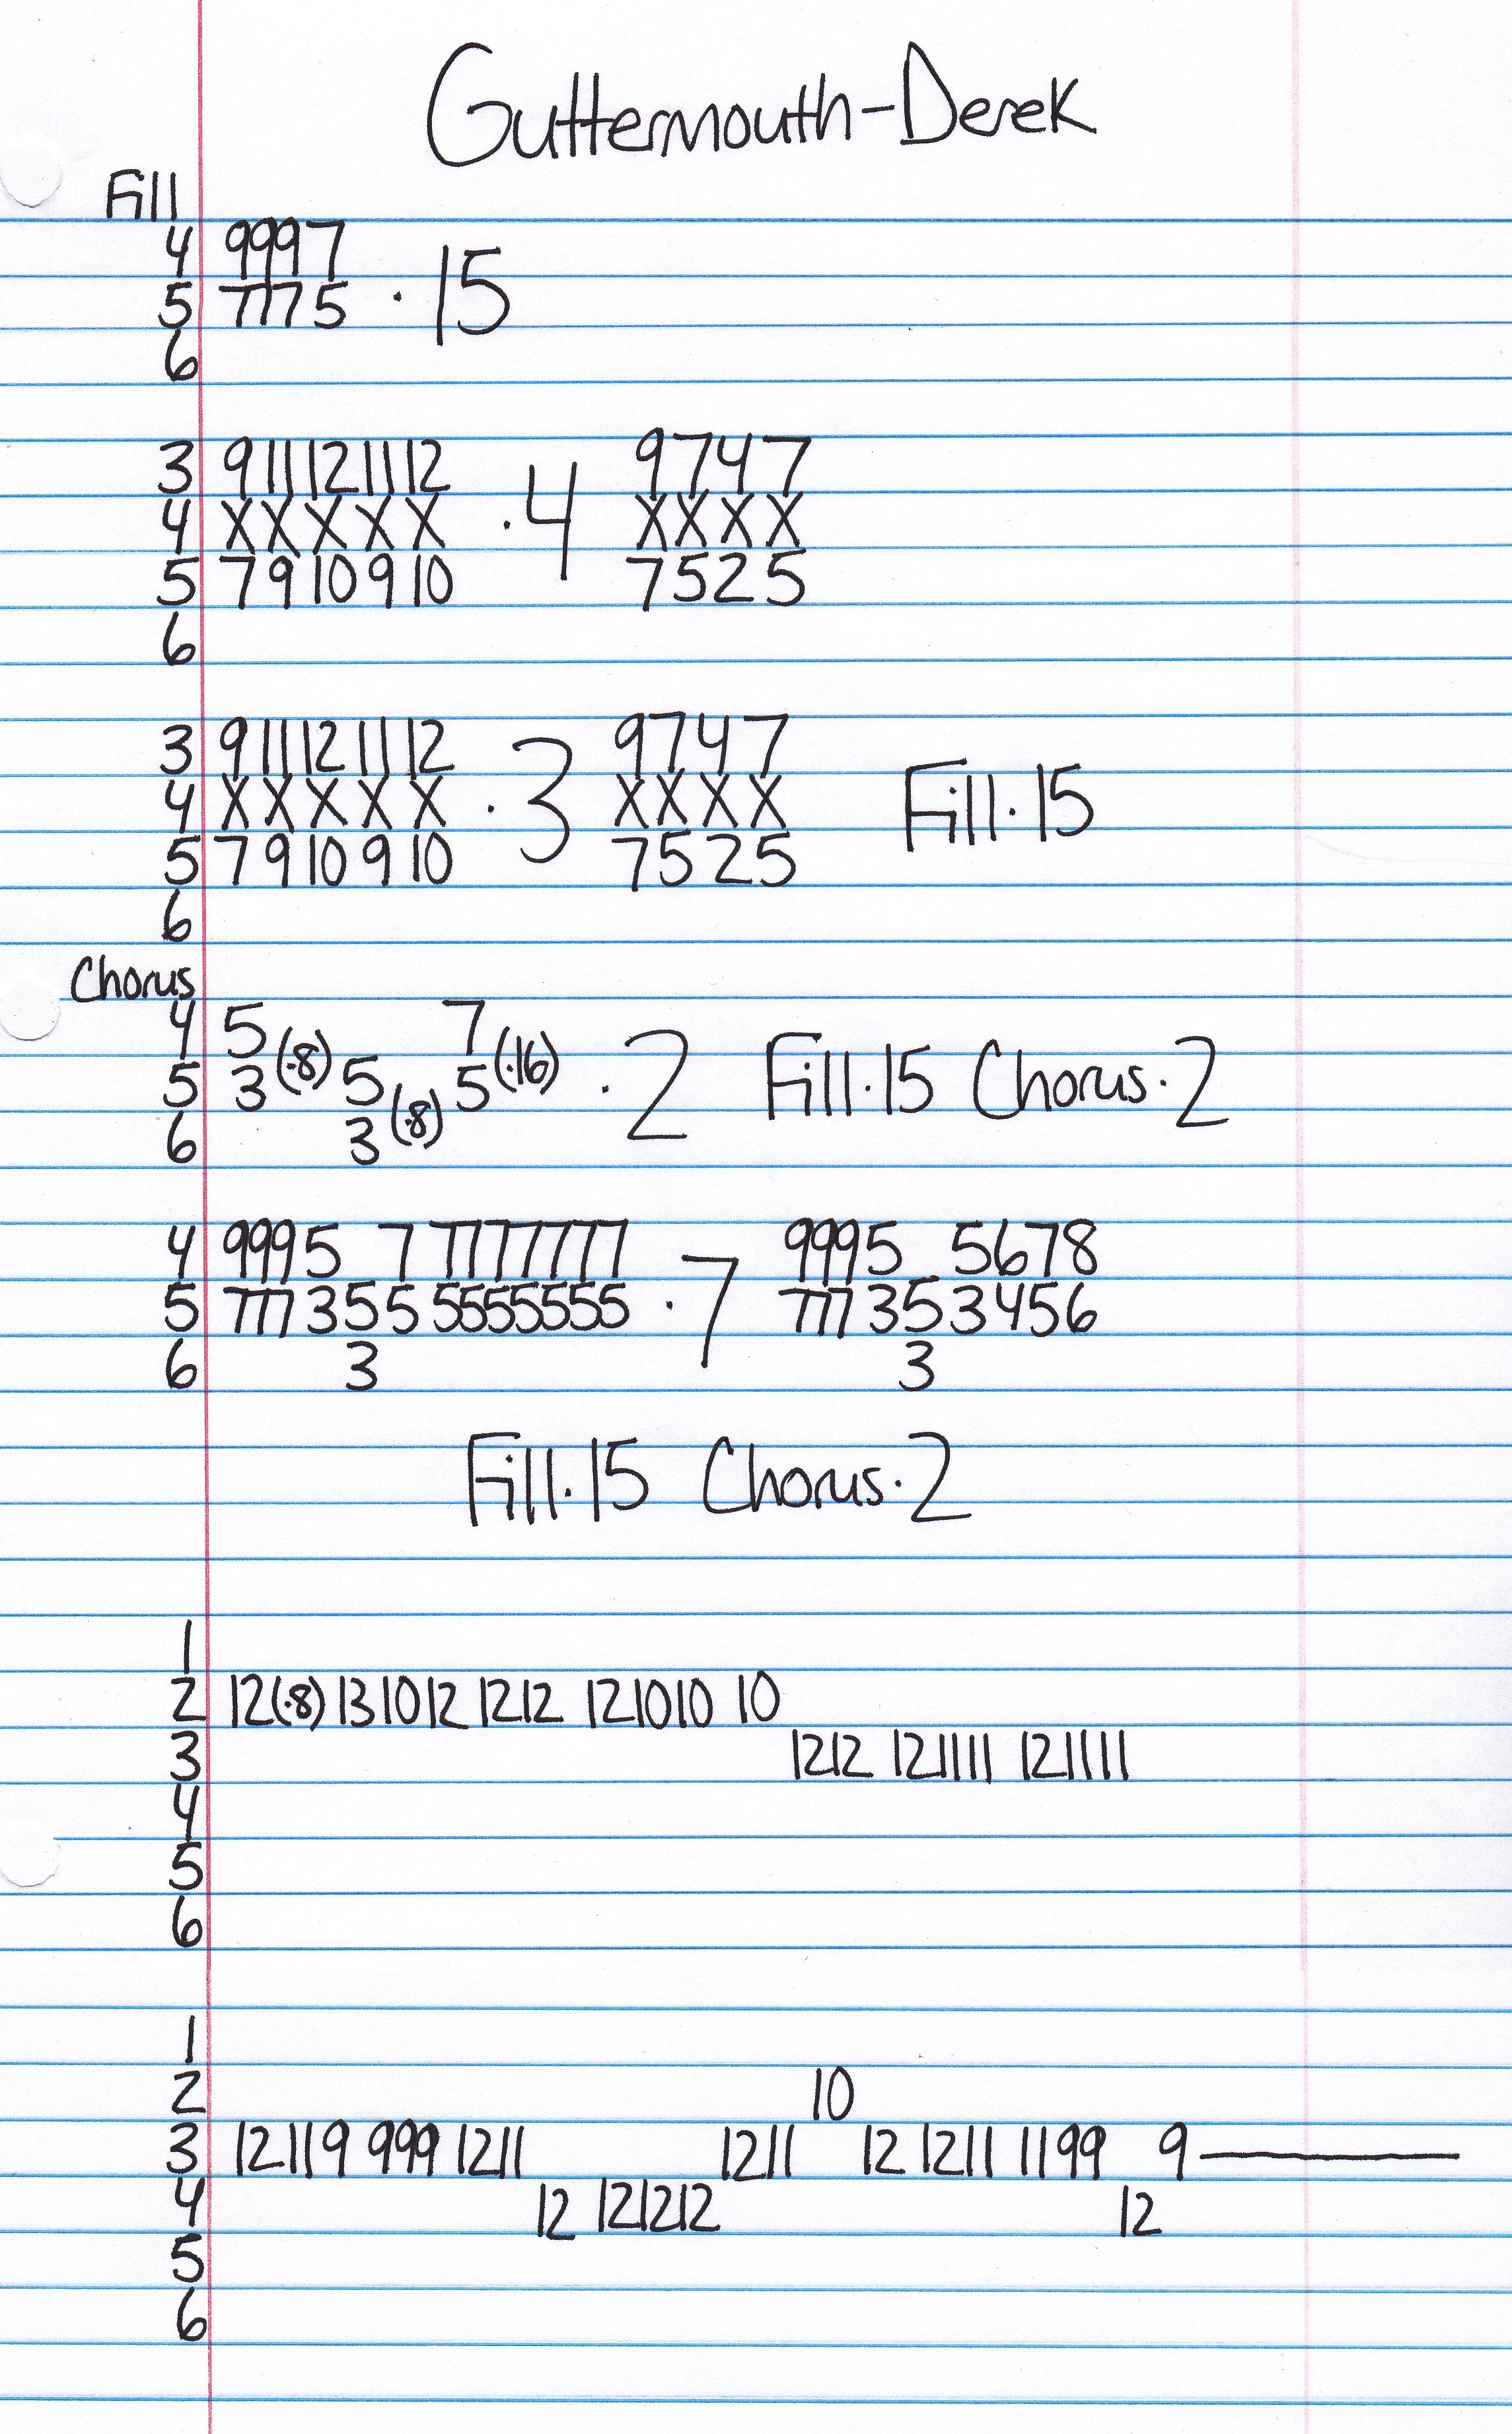 Guttermouth-Derek
Fill
4 9997
5 7775 ·15
6
3 9 11 12 11 12 9747
4 X X X X X ·4 X X X X
5 7 9 10 9 10 7525
6
3 9 11 12 11 12 9747
4 X X X X X ·3 X X X X Fill·15
5 7 9 10 9 10 7525
6
Chorus
4 5 7
5 3 (·8) 5 5 (·16) ·2 Fill·15 Chorus·2
6 3 (·8)
4 9995 7 7777777 9995 5678
5 777355 5555555 ·7 777353456
6 3 3
Fill·15 Chorus·2
1
2 12(·8) 13 10 12 12 12 12 10 10 10
3 12 12 12 11 11 12 11 11
4
5
6
1
2 10
3 12 11 9 999 12 11 12 11 12 12 11 11 9 9 9
4 12 12 12 12 12
5
6